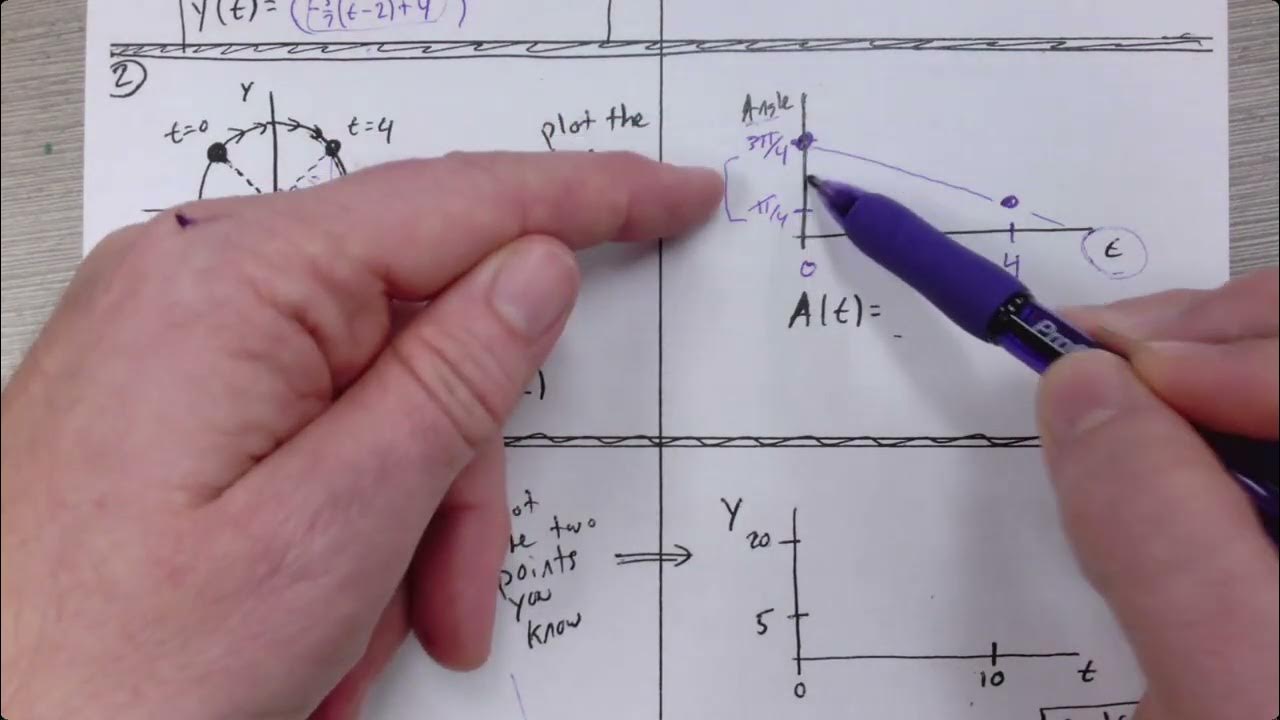 Y(t) = (-3/7(t-2)+4)
2)
Y
t=0
t=4
plot the
Angle
3π/4
π/4
0
4
t
A(t)=
points
you
know
two
Y
20
5
0
10
t